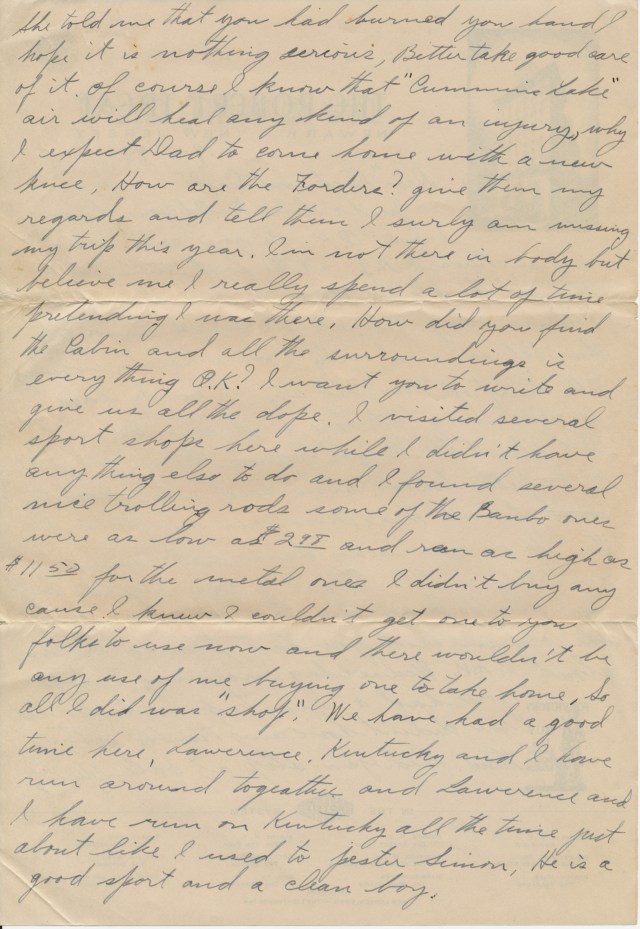 she told me that you had burned you hand I
hope it is nothing serious, Better take good care
of it. of course I know that "Cummins Lake"
air will heal any kind of an injury, why
I expect Dad to come home with a new
knee. How are the Forders? give them my
regards and tell them I surly am missing
my trip this year. I'm not there in body but
believe me I really spend a lot of time
pretending I was there. How did you find
the Cabin and all the surroundings is
everything O.K? I want you to write and
give us all the dope. I visited several
sport shops here while I didn't have
anything else to do and I found several
nice trolling rods some of the Banbo ones
were as low as $2.98 and ran as high as
$11.50 for the metal ones I didn't buy any
cause I knew I couldn't get one to you
folks to use now and there wouldn't be
any use of me buying one to take home, So
all I did was "shop". We have had a good
time here, Lawerence, Kentucky and I have
run around togeather and Lawerence and
I have run on Kentucky all the time just
about like I used to pester Simon, He is a
good sport and a clean boy.